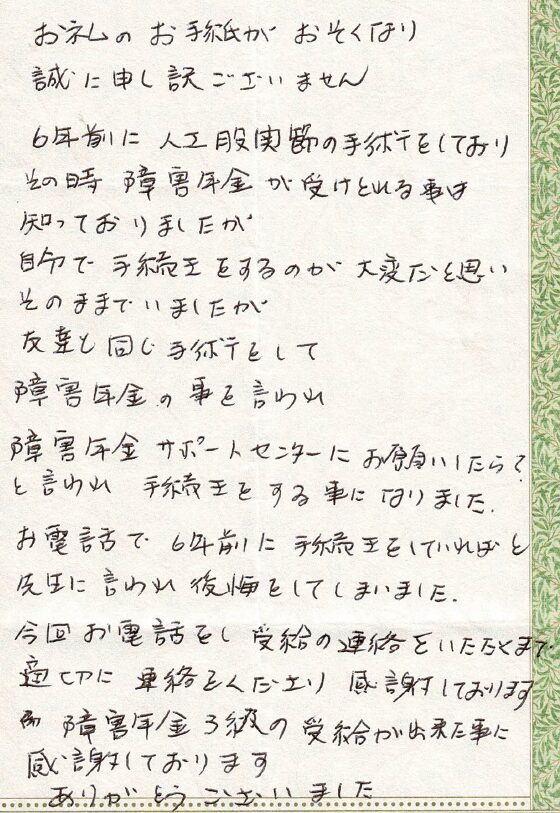 お礼のお手紙がおそくなり
誠に申し訳ございません
6年前に 人工股関節の手術をしており
その時 障害年金が受けとれる事は
知っておりましたが
自分で手続きをするのが大変だと思い
そのままでいましたが
友達も同じ手術をして
障害年金の事を言われ
障害年金サポートセンターにお願いしたら?
と言われ 手続きをする事になりました.
お電話で 6年前に手続きをしていればと
先生に言われ後悔をしてしまいました.
今回お電話をし受給の連絡をいただくまで
適切に連絡をくださり 感謝しております
障害年金3級の受給が出来た事に
感謝しております
ありがとうございました